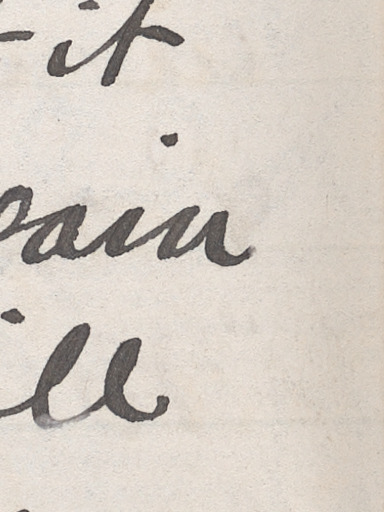 it
ain
ill